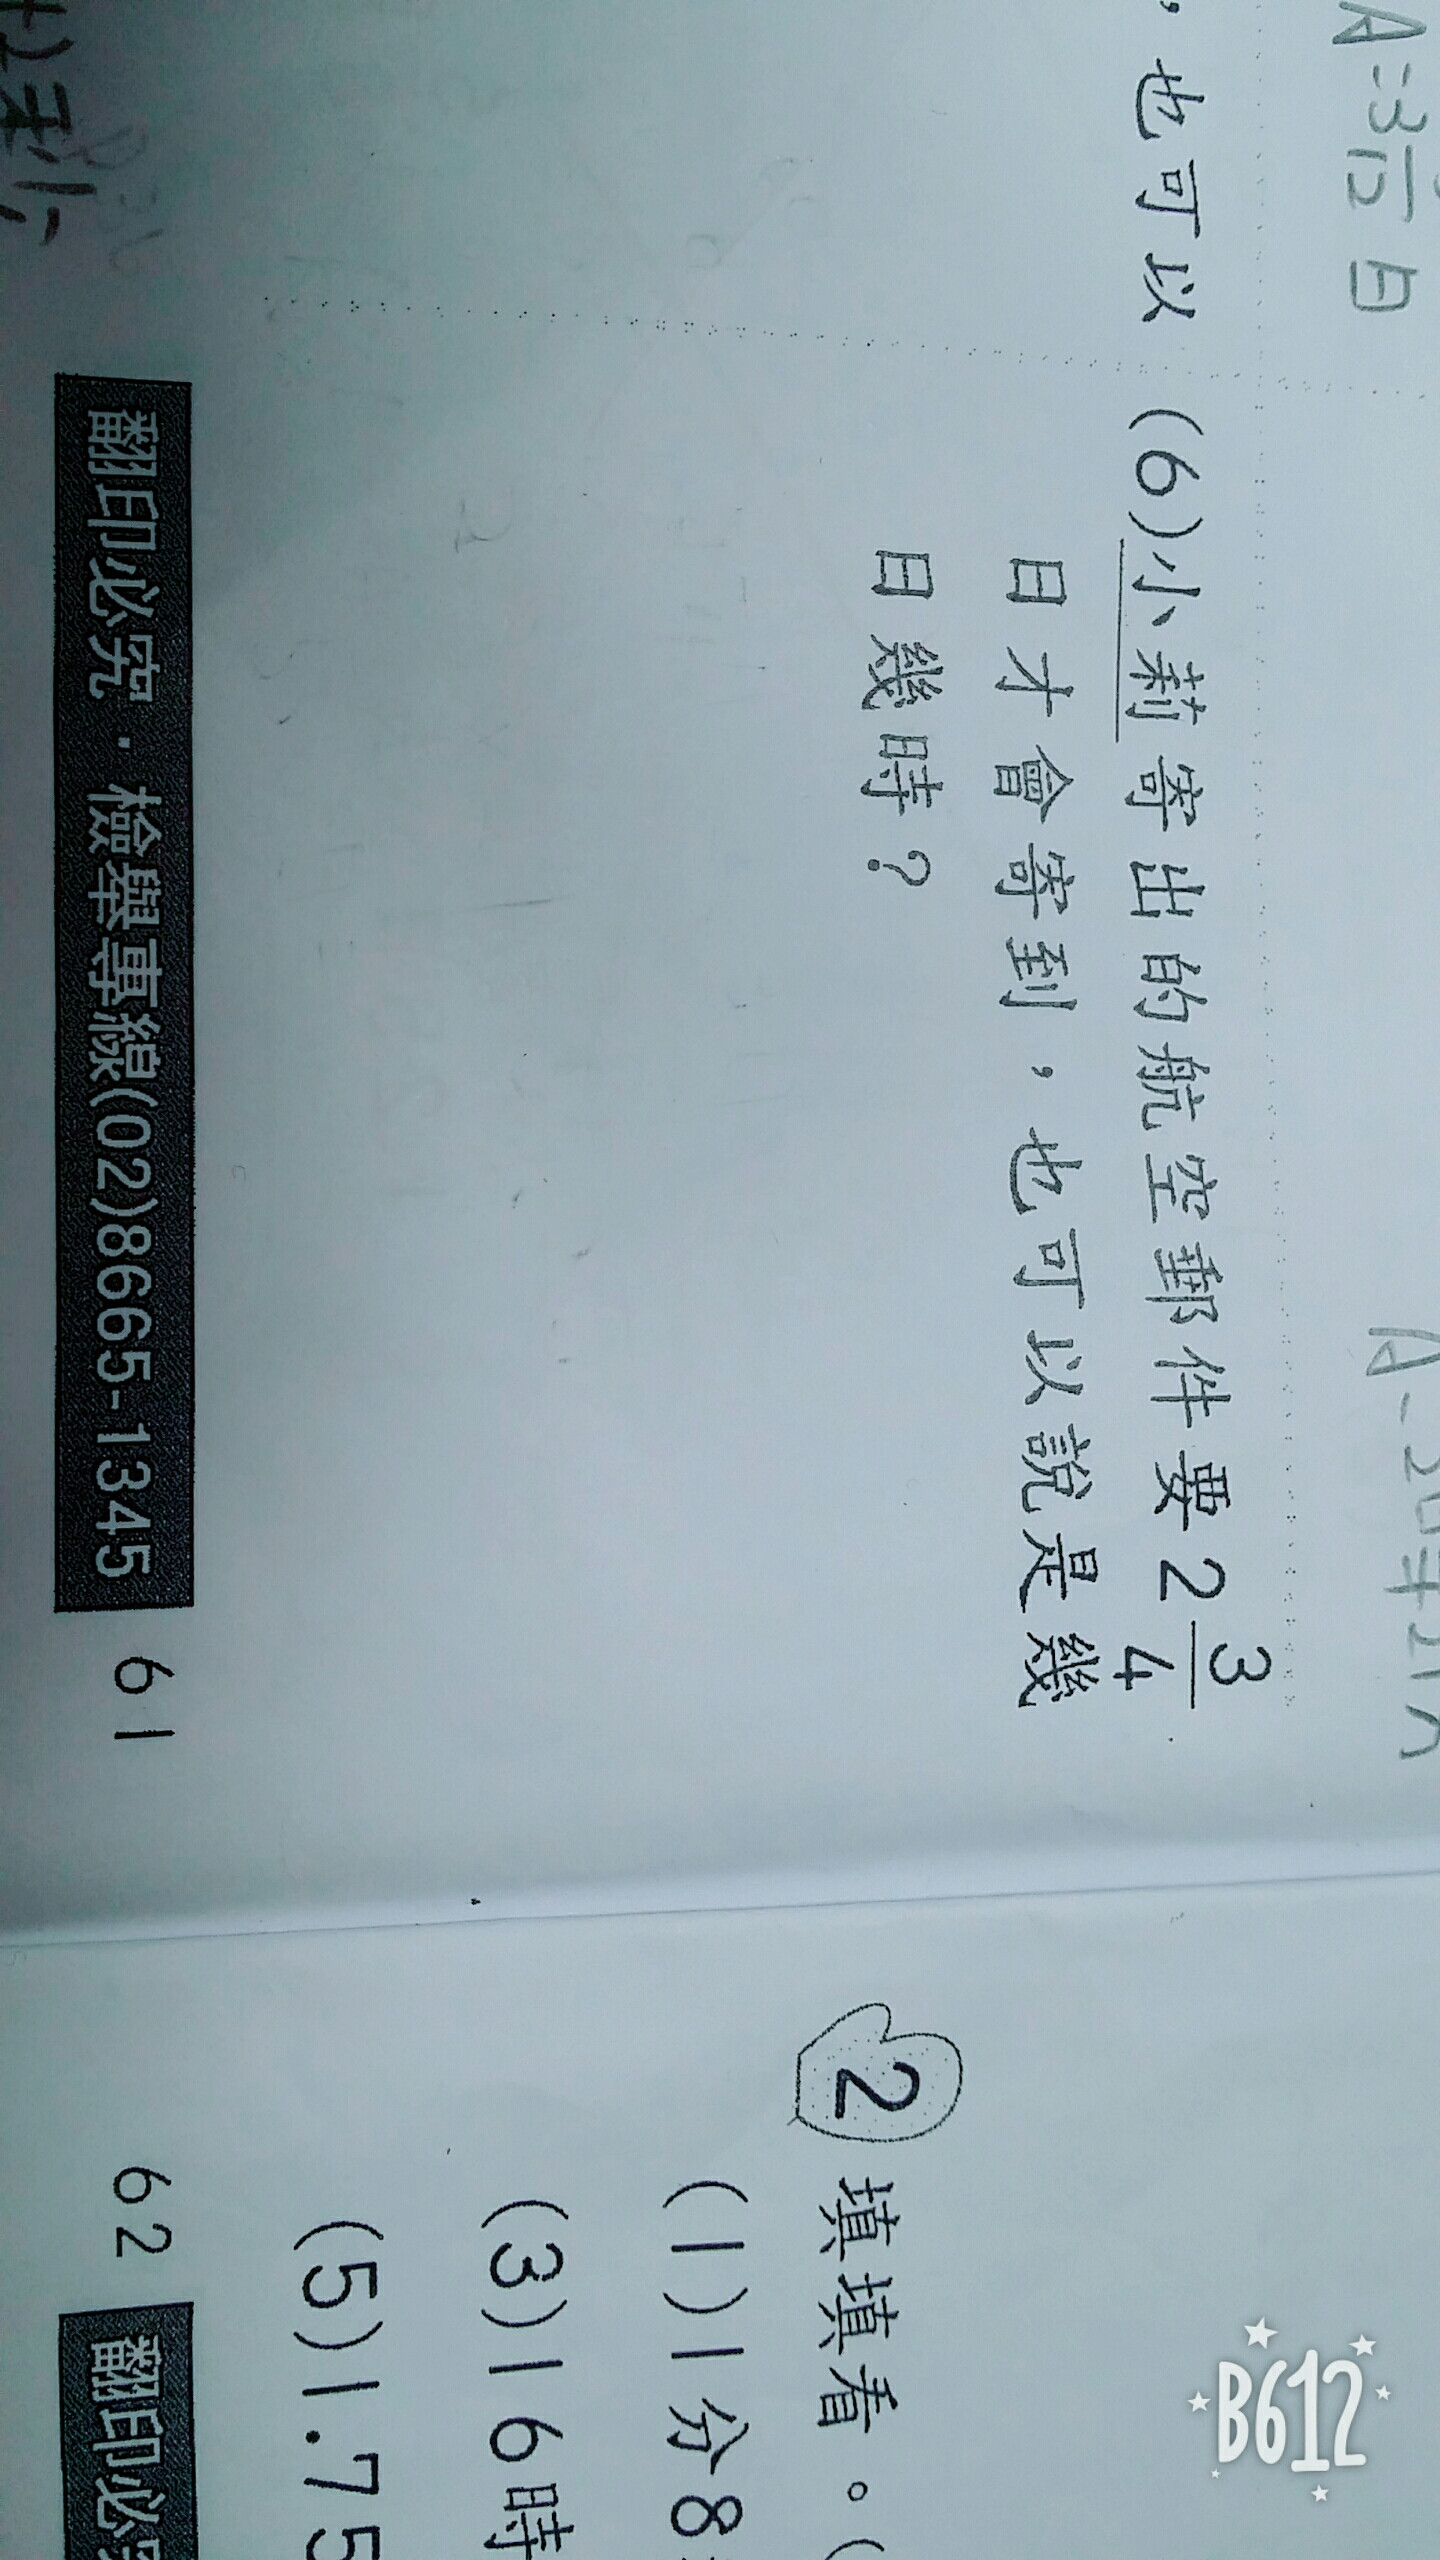 A:3
12日
，也可以
(6)小莉寄出的航空郵件要2 3/4
日才會寄到，也可以說是幾
日幾時？
翻印必究．檢舉專線(02)8665-1345 61
2 填填看。(
(1)1分8
(3)16時
(5)1.75
62 翻印必究
B612